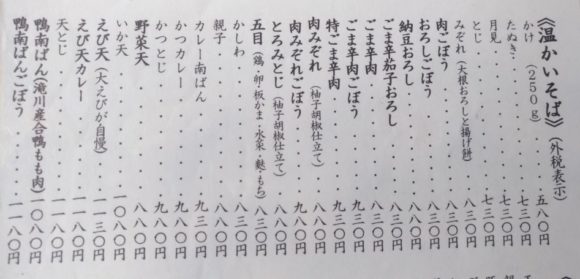 《温かいそば》(外税表示)
(250g)
かけ・・・・・・・・五八〇円
たぬき・・・・・・・・七三〇円
月見・・・・・・・・七三〇円
とじ・・・・・・・・七三〇円
みぞれ(大根おろしと揚げ餅)・・・・八三〇円
肉ごぼう・・・・・・・・八八〇円
おろしごぼう・・・・・・・八三〇円
納豆おろし・・・・・・・八三〇円
ごま辛茄子おろし・・・・・・八八〇円
ごま辛肉・・・・・・・・八三〇円
ごま辛肉ごぼう・・・・・・八八〇円
特ごま辛肉・・・・・・・九八〇円
肉みぞれ(柚子胡椒仕立て)・・・・八八〇円
肉みぞれごぼう・・・・・・九三〇円
とろみとじ(柚子胡椒仕立て)・・・八三〇円
五目(鶏・卵・板かま・水菜・麩・もち)八三〇円
かしわ・・・・・・・・八三〇円
親子・・・・・・・・八八〇円
カレー南ばん・・・・・・・九三〇円
かつカレー・・・・・・・九八〇円
かつとじ・・・・・・・・九八〇円
野菜天・・・・・・・・八八〇円
いか天・・・・・・・・一〇八〇円
えび天(大えびが自慢)・・・・一一三〇円
えび天カレー・・・・・・一一八〇円
天とじ・・・・・・・・一一八〇円
鴨南ばん(滝川産合鴨もも肉)一〇八〇円
鴨南ばんごぼう・・・・・・一一八〇円